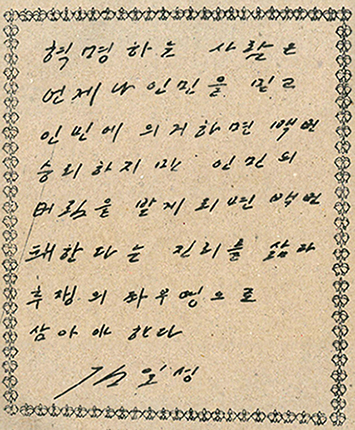 혁명하는 사람은
언제나 인민을 믿고
인민에 의거하면 백번
승리하지만 인민의
버림을 받게 되면 백번
패한다는 진리를 삶과
투쟁의 좌우명으로
삼아야 한다
김일성